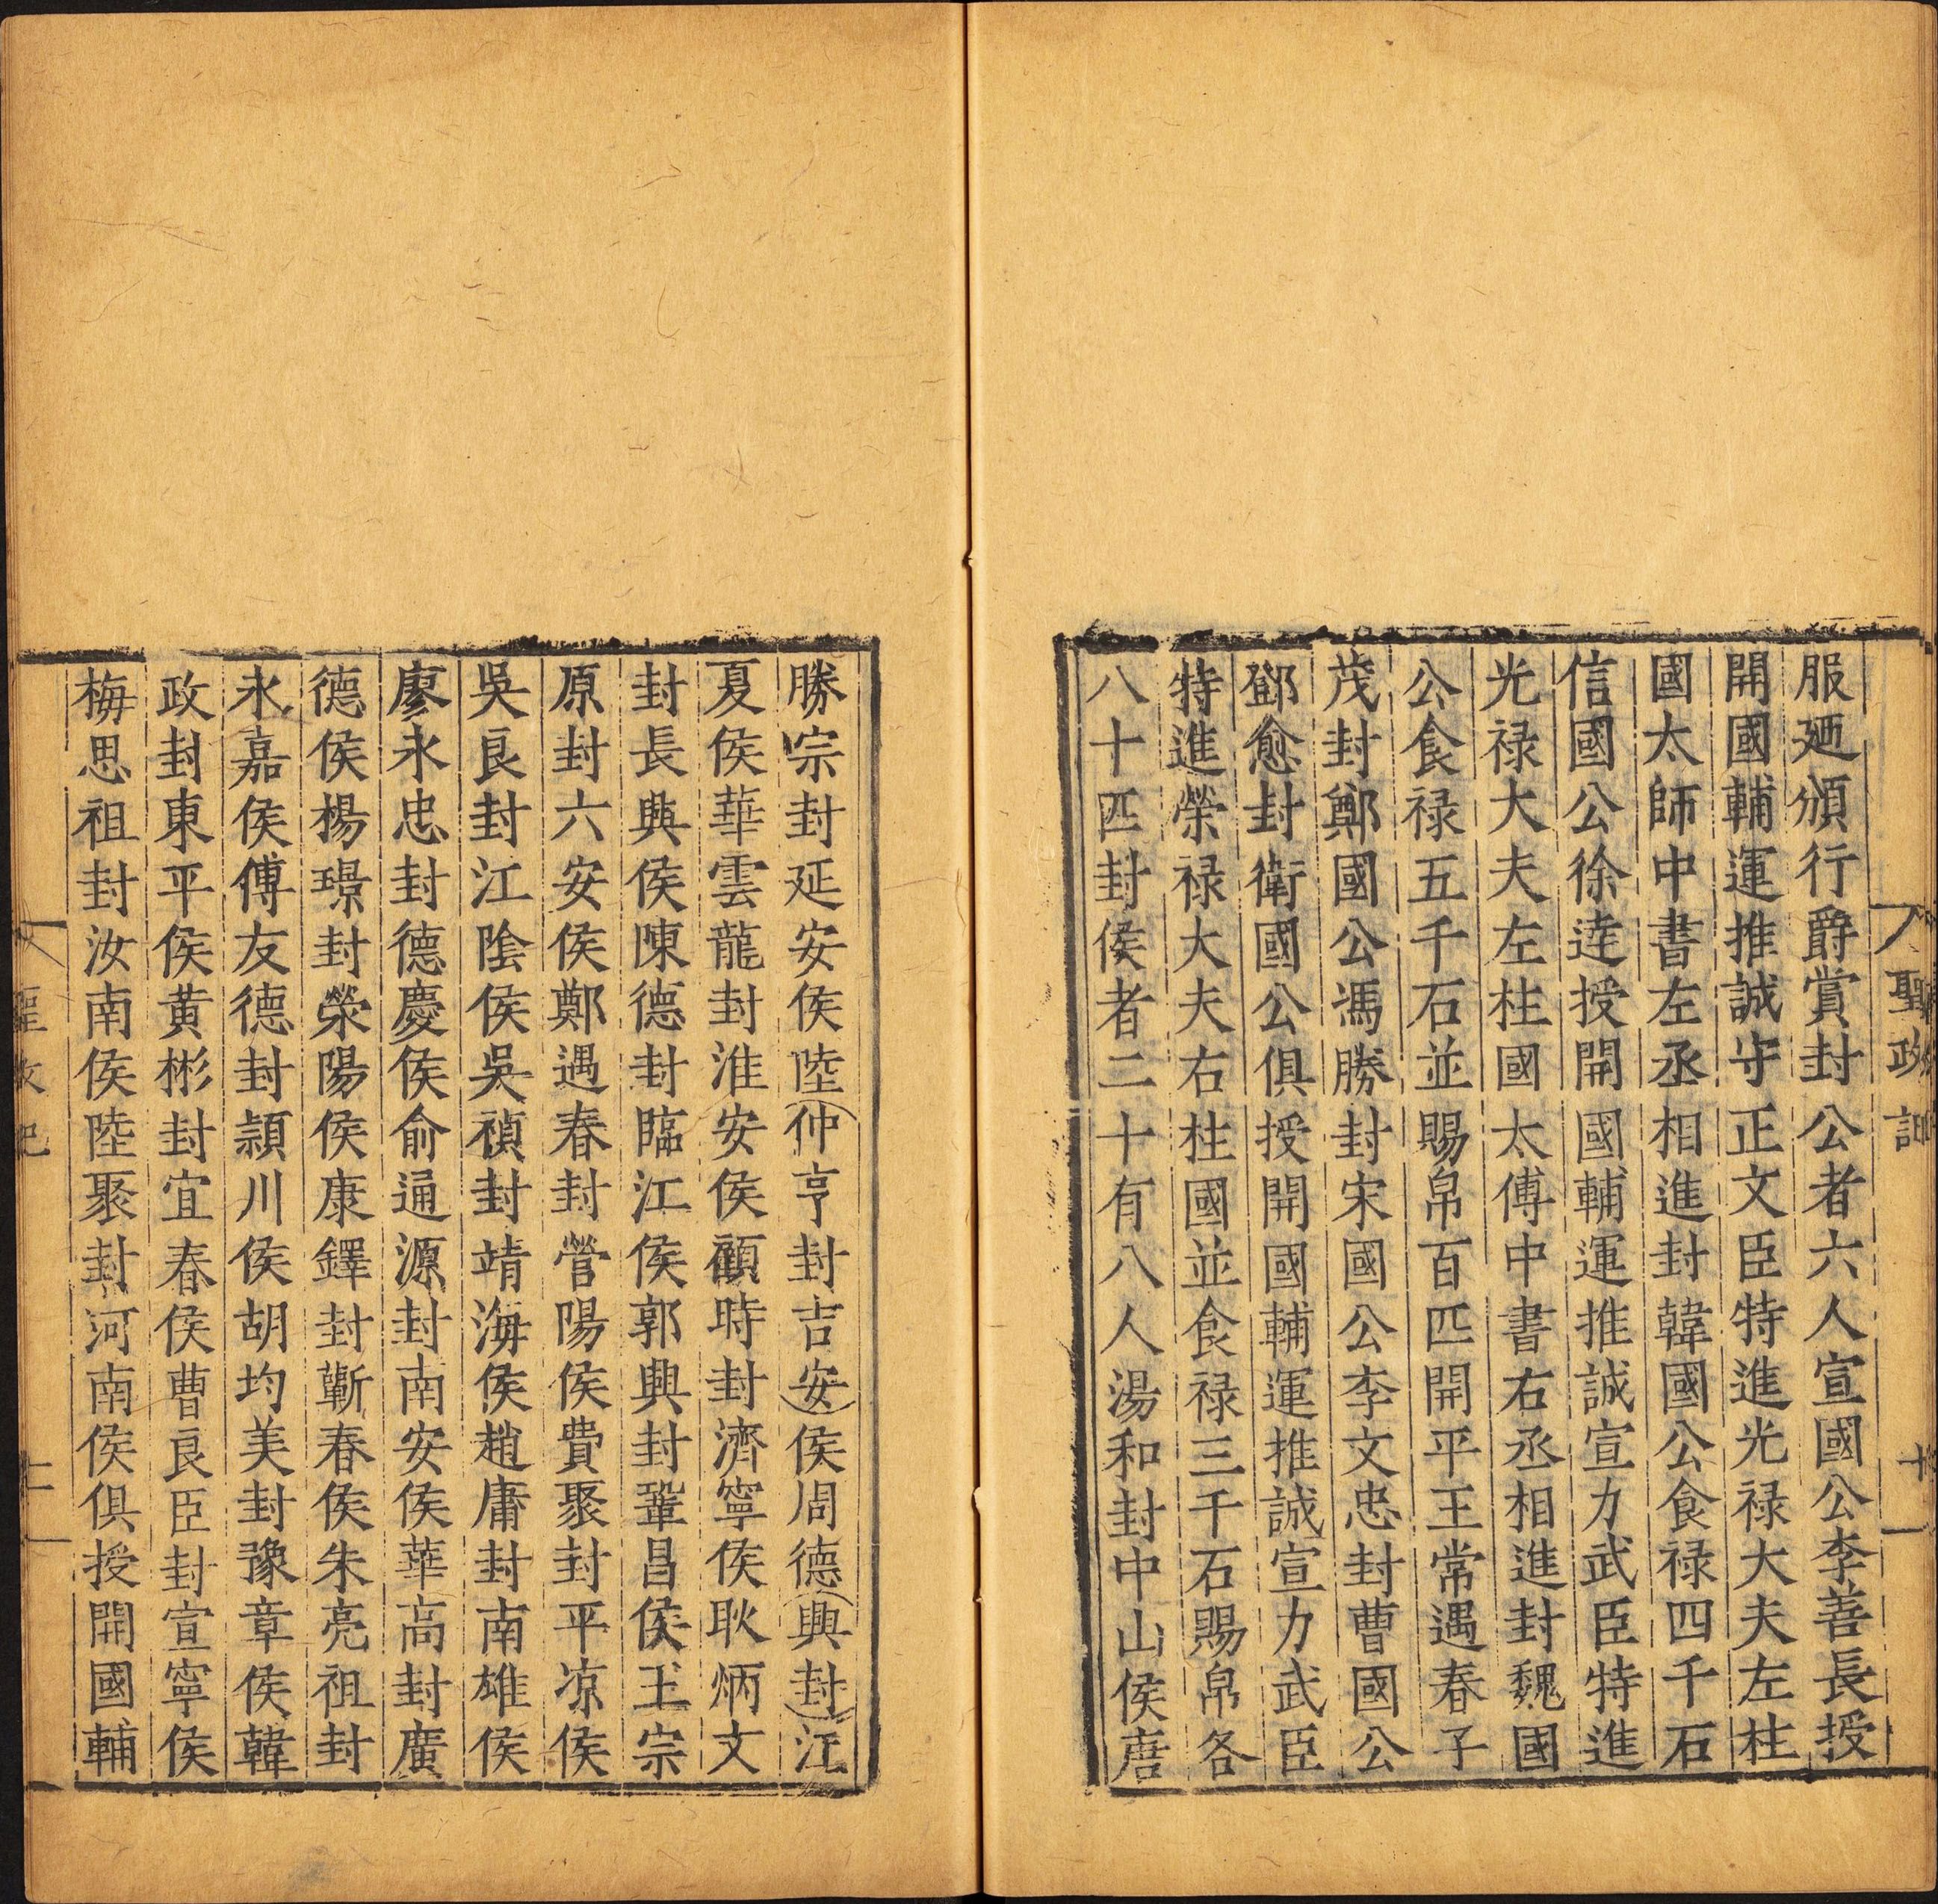 聖政記
十
服廼頒行爵賞封公者六人宣國公李善長授
開國輔運推誠守正文臣特進光禄大夫左柱
國太師中書左丞相進封韓國公食禄四千石
信國公徐逹授開國輔運推誠宣力武臣特進
光禄大夫左柱國太傅中書右丞相進封魏國
公食禄五千石並賜帛百匹開平王常遇春子
茂封鄭國公馮勝封宋國公李文忠封曹國公
鄧愈封衛國公俱授開國輔運推誠宣力武臣
特進榮禄大夫右柱國並食禄三千石賜帛各
八十匹封侯者二十有八人湯和封中山侯唐
勝宗封延安侯陸仲亨封吉安侯周德興封江
夏侯華雲龍封淮安侯顧時封濟寧侯耿炳文
封長興侯陳德封臨江侯郭興封鞏昌侯王宗
原封六安侯鄭遇春封營陽侯費聚封平凉侯
吳良封江陰侯吳禎封靖海侯趙庸封南雄侯
廖永忠封德慶侯俞通源封南安侯華高封廣
德侯楊璟封滎陽侯康鐸封蘄春侯朱亮祖封
永嘉侯傅友德封潁川侯胡均美封豫章侯韓
政封東平侯黄彬封宜春侯曹良臣封宣寧侯
梅思祖封汝南侯陸聚封河南侯俱授開國輔